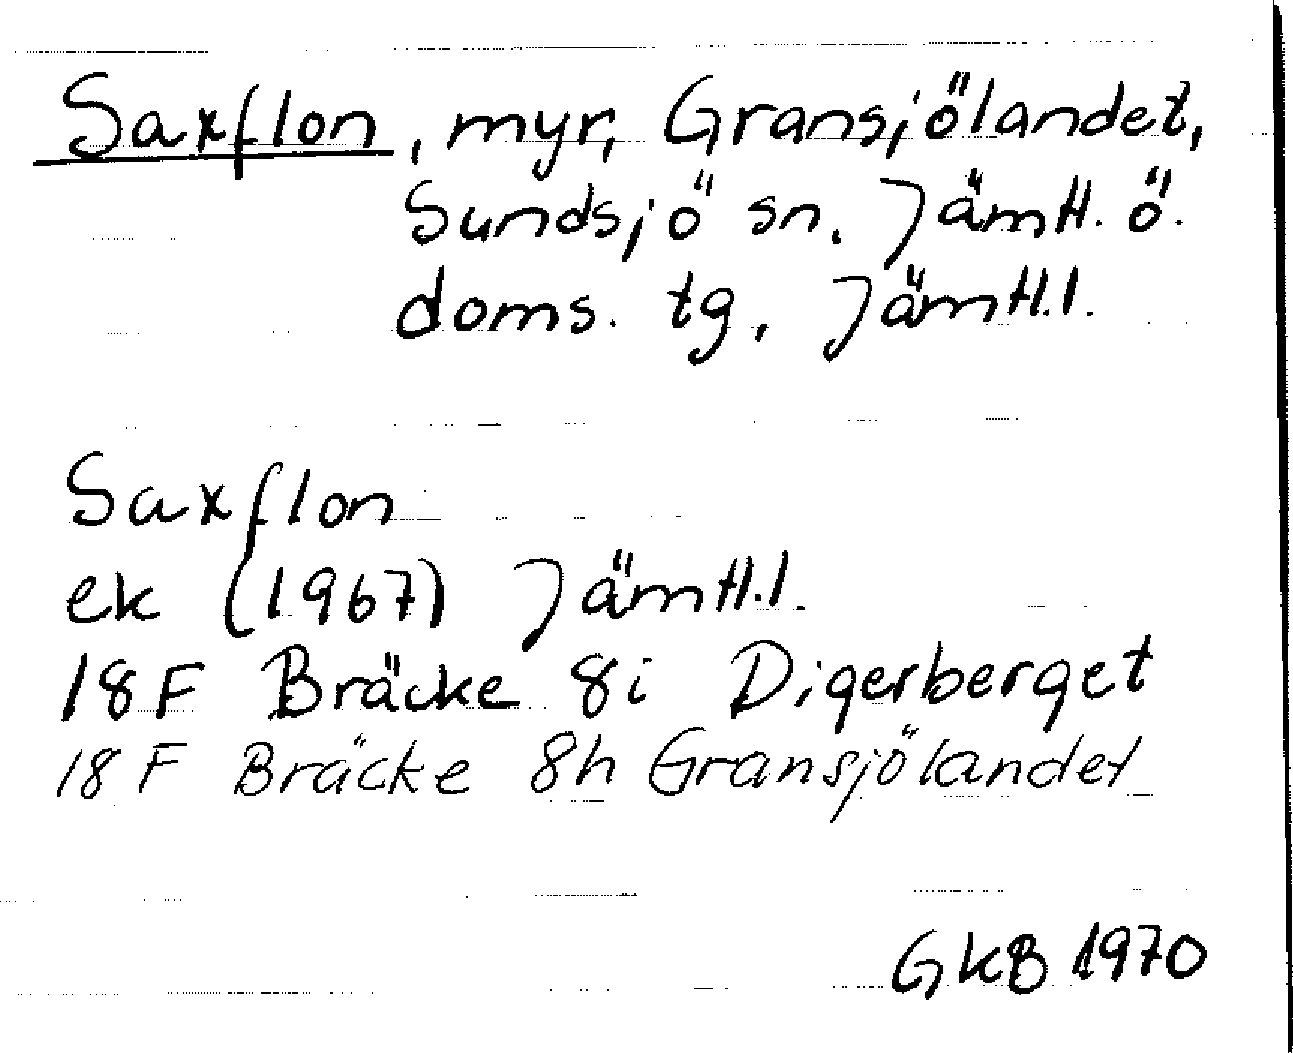 Saxflon, myr, Gransjölandet,
Sundsjö sn. Jämtl. ö.
doms. tg, Jämtl.l.
Saxflon
ek (1967) Jämtl.l.
18F Bräcke 8i Digerberget
18F Bräcke 8h Gransjölandet
GKB 1970